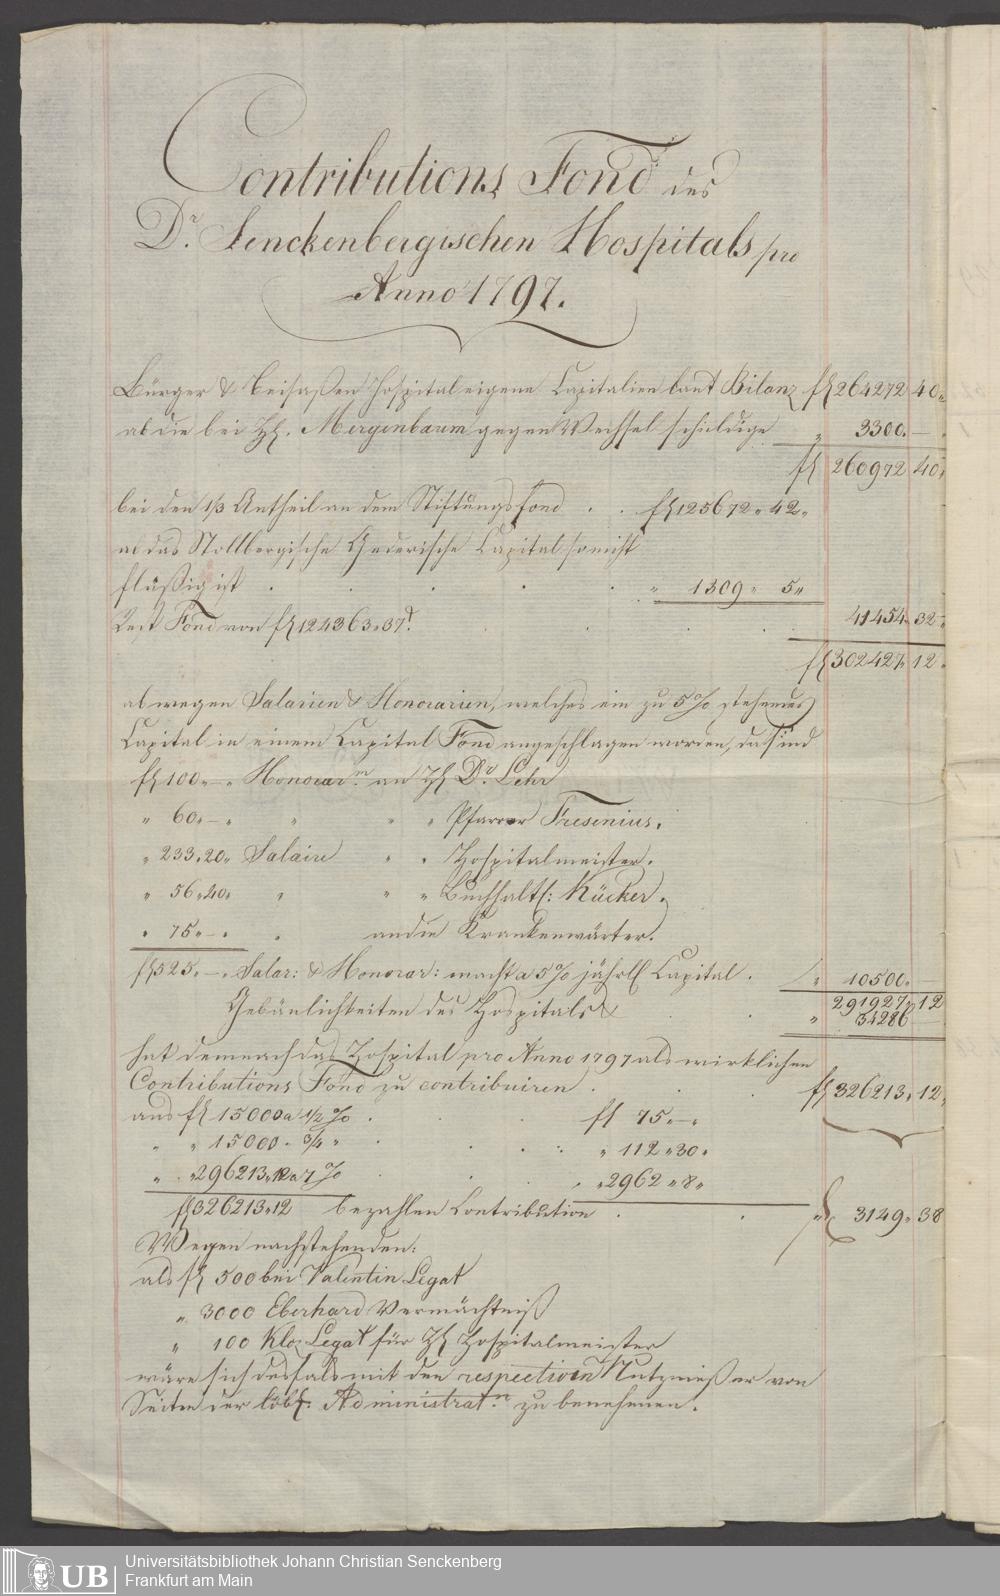 Contributions Fond des
Dr. Senckenbergischen Hospitals pro
Anno 1797.
Bürger & Beisaßen Hospital eigene Capitalien laut Bilanz fl 264272 40„
ab die bei HH. Mergenbaum gegen Wechsel schuldige „ 3300. —
fl 260972 40„
bei den 1/3 Antheil an dem Stiftungsfond . . fl 125672„ 42„
ab das Stollbergische Gederische Capital so nicht
fläßig ist . . . . „ 1309„ 5„
Rest Fond von fl 124363„ 37d. . . . 41454„ 32„
fl 302427„ 12„
ab wegen Salarien & Honorarien, welches ein zu 5 % stehendes
Capital in einem Capital Fond angeschlagen worden, da sind
fl 100„ — „ Honorarm. an HE Dr. Lehr
„ 60„ — „ „ „ „ Pfarrer Fresenius.
„ 233„ 20„ Salaire „ „ Hospitalmeister.
„ 56„ 40„ „ „ „ Buchhalt: Kücker.
„ 75„ — „ „ an die Krankenwärter.
fl 525„ — „ Salar: & Honorar: macht a 5 % jährl Capital . „ 10500„
291927„ 12
Gebäulichkeiten des Hospitals . . „ 34286 —
hat demnach das Hospital pro Anno 1797 als wirklichen
Contributions Fond zu contribuiren . . . fl 326213„ 12„
aus fl 15000 a 1/2 % . . fl 75„ — „
„ „ 15000 „ 3/4 „ . . . „ 112„ 30„
„ „ 296213„ 12 a 1 % . „ 2962„ 8„
fl 326213„ 12 bezahlen Contribution . . fl 3149„ 38
Wegen nachstehenden:
als fl 500 bei Valentin Legat
„ 3000 Eberhard Vermächtniß
„ 100 Kloz Legat für HE Hospitalmeister
wäre sich desfals mit den respectiven Nutznießer von
Seiten der löbl: Administratn. zu benehmen.
UB
Universitätsbibliothek Johann Christian Senckenberg
Frankfurt am Main